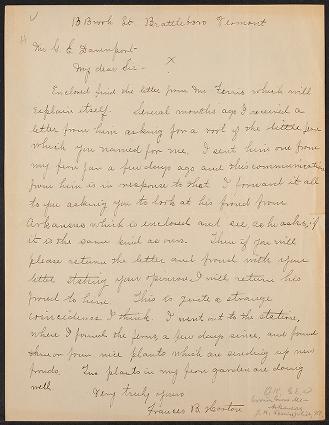 13 Brook St. Brattleboro Vermont
Mr G. E. Davenport-
My dear Sir- x
Enclosed find the letter from Mr Ferris which will
explain itself. Several months ago I received a
letter from him asking for a root of the little fern
which you named for me. I sent him one from
my fern jar a few days ago and this communication
from him is in response to that. I forward it all
to you asking you to look at his frond from
Arkansas which is enclosed and see, as he asks, if
it is the same kind as ours. Then if you will
please return the letter and frond with your
letter stating your opinion I will return his
frond to him. This is quite a strange
coincidence I think. I went out to the station,
where I found the ferns, a few days since, and found
three or four nice plants which are sending up new
fronds. Two plants in my fern garden are doing
well.
Very truly yours
Frances B. Horton
Arkansas